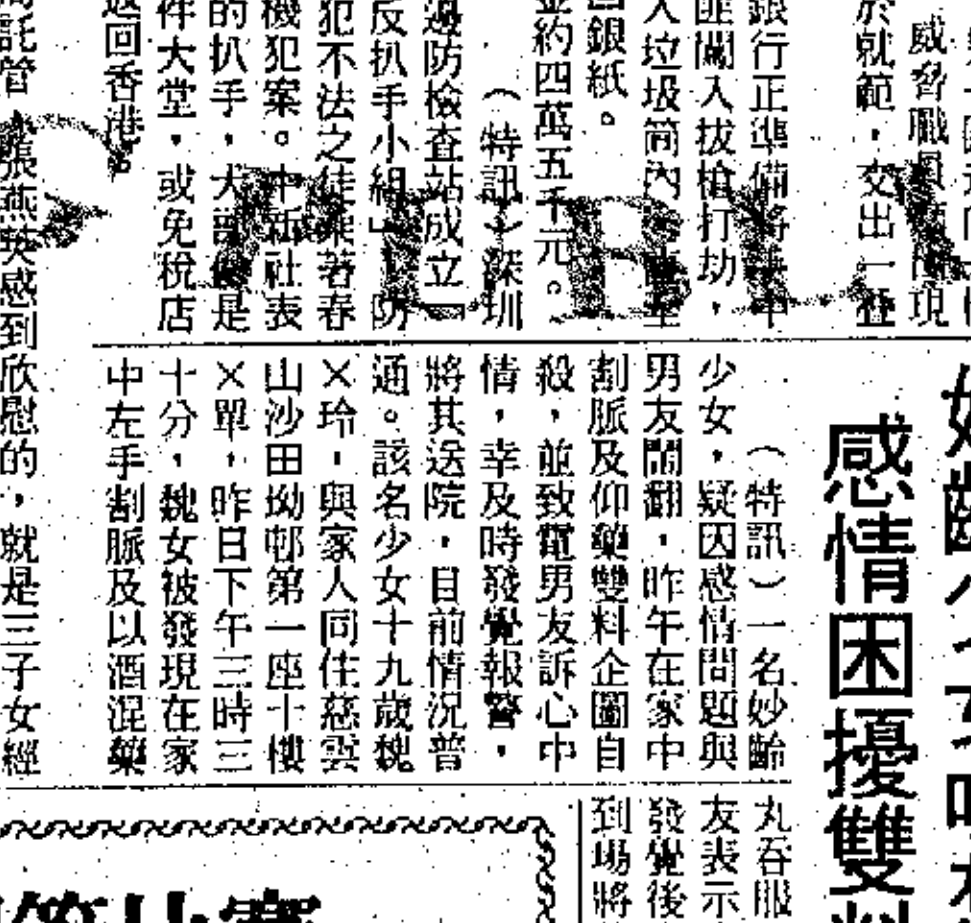 於就範，交出一疊
銀行正準備將
匪闖入拔槍打劫，
入垃圾筒內
銀紙。
約四萬五千元。
（特訊）深圳
邊防檢查站成立「
反扒手小組」防
犯不法之徒乘着春
機犯案。中新社表
的扒手，大部
件大堂，或免稅店
返回香港。
託管
張燕英感到欣慰的，就是三子女經
感情困擾雙料
（特訊）一名妙齡
少女，疑因感情問題與
男友鬧翻，昨午在家中
割脈及仰藥雙料企圖自
殺，並致電男友訴心中
情，幸及時發覺報警，
將其送院，目前情況普
通。該名少女十九歲魏
×玲，與家人同住慈雲
山沙田坳邨第一座十樓
×單，昨日下午三時三
十分，魏女被發現在家
中左手割脈及以酒混藥
丸吞服
友表示
發覺後
到場將